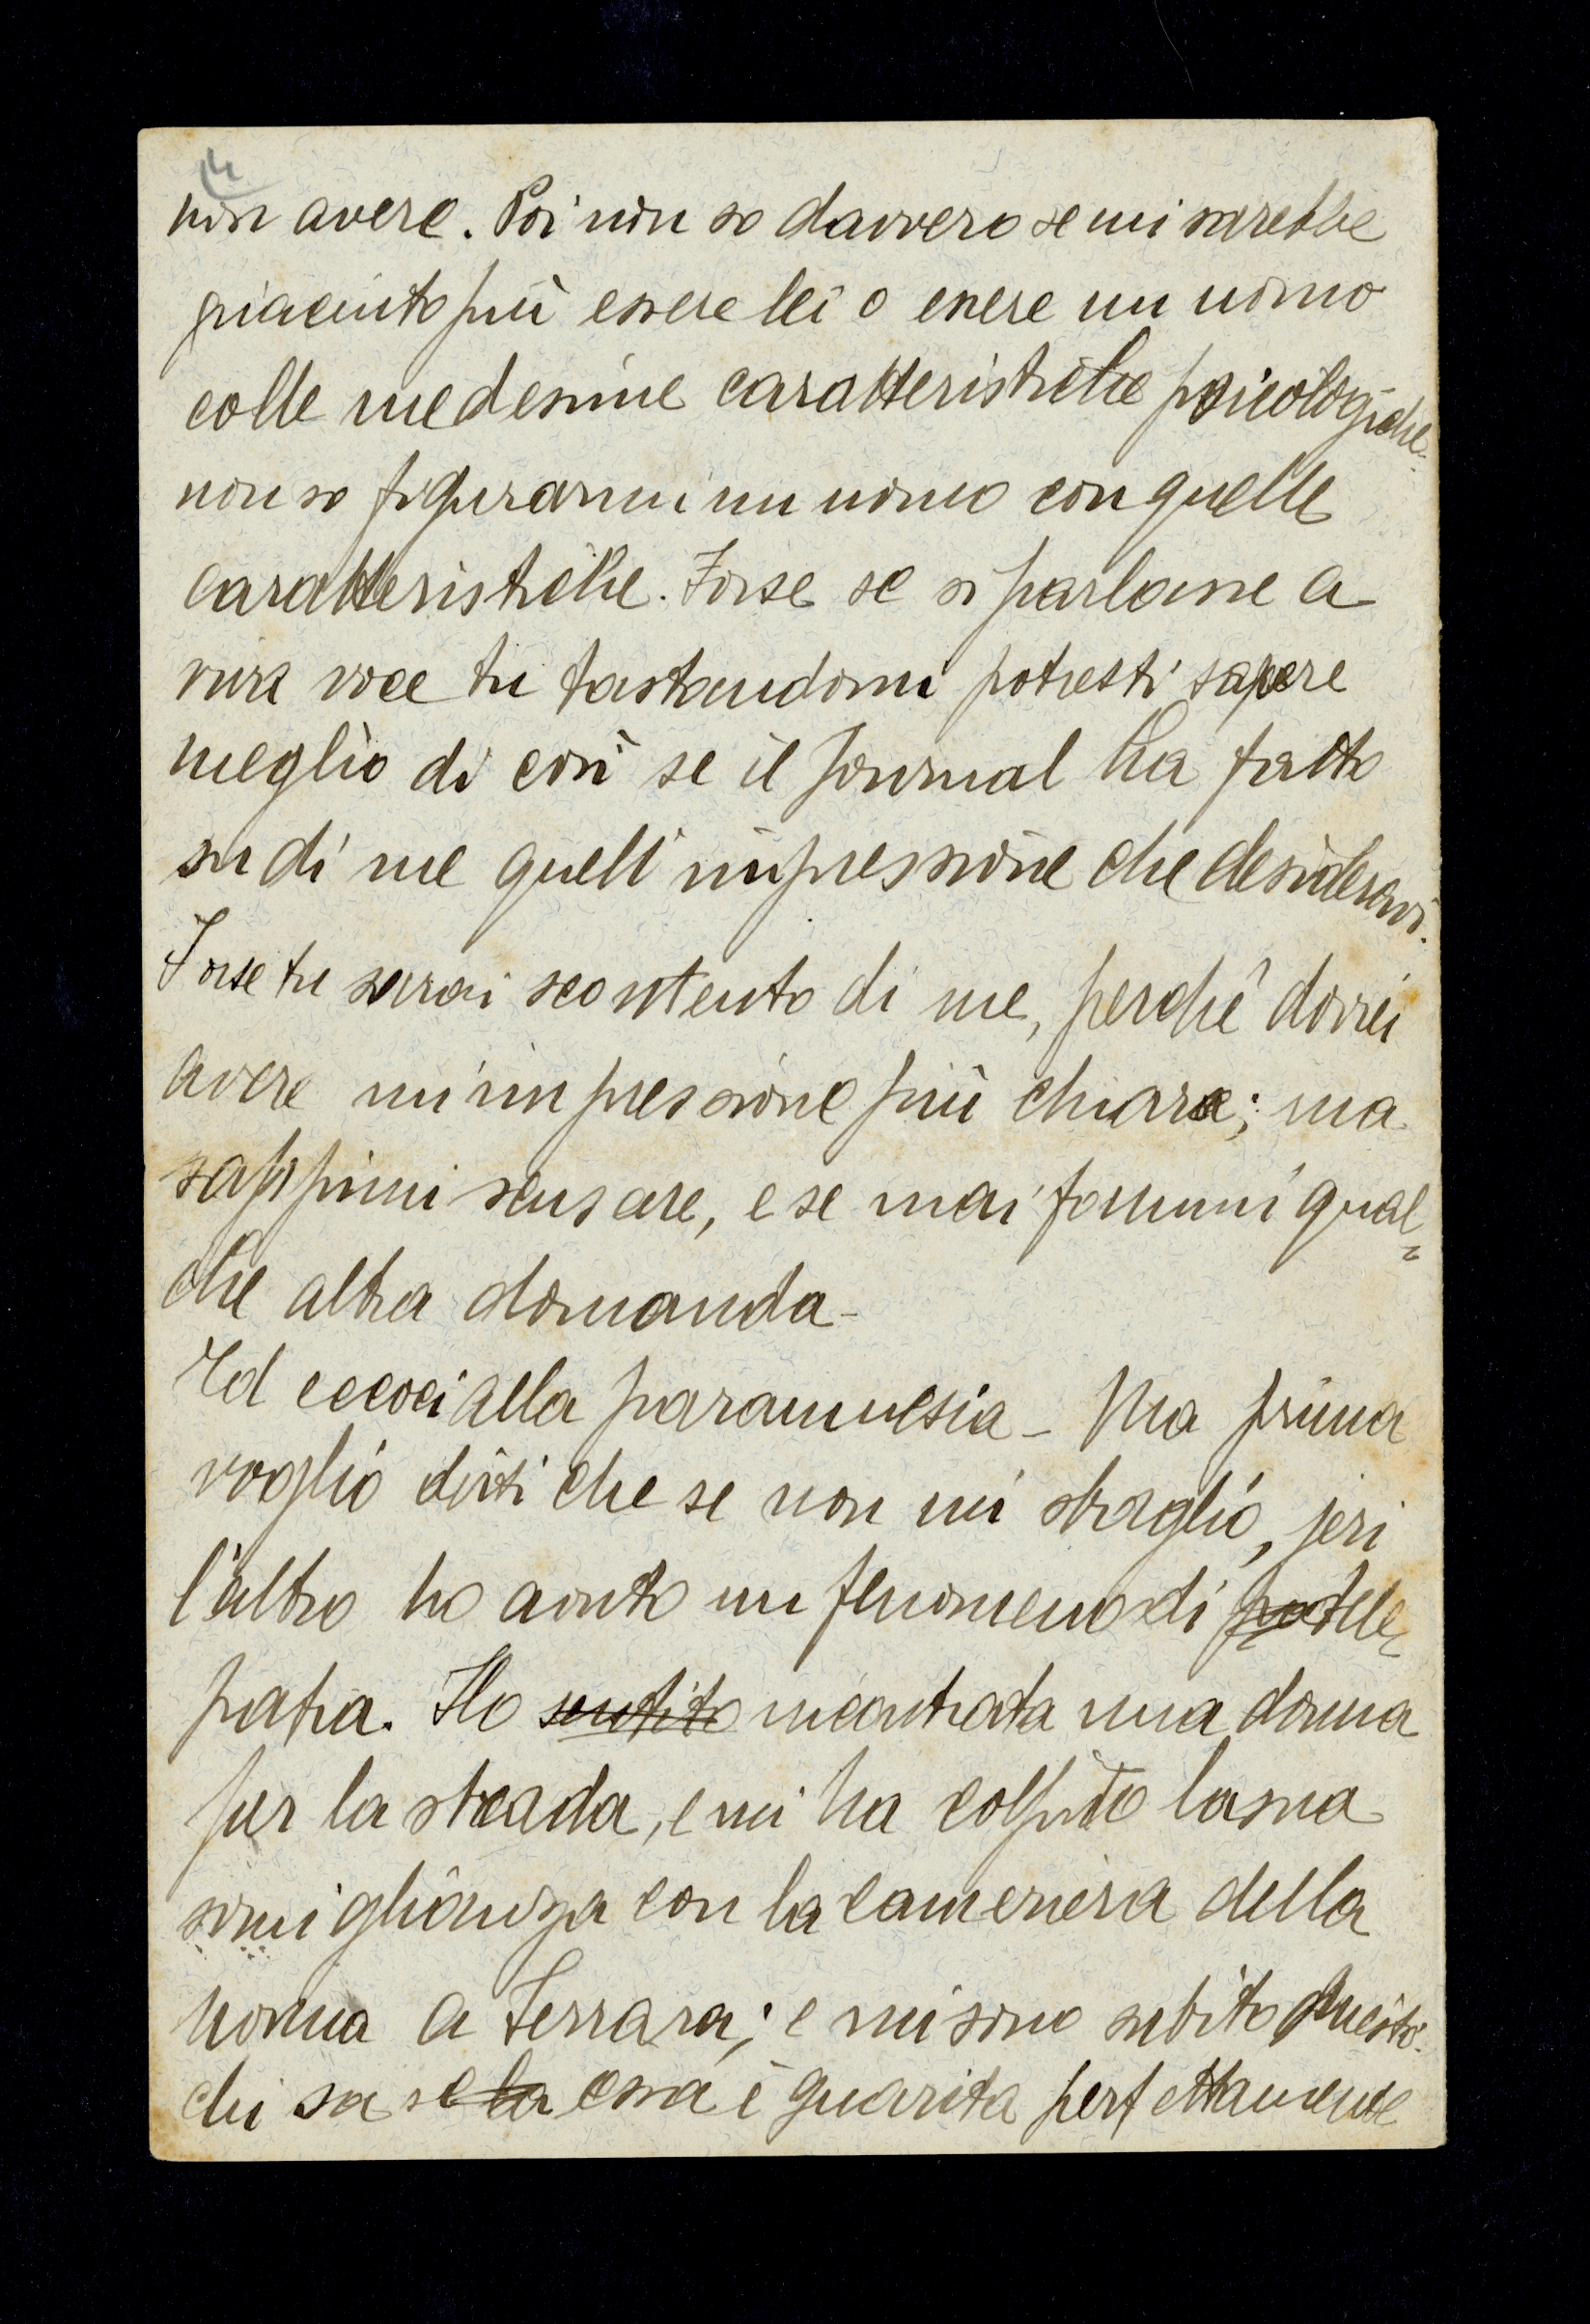 non avere. Poi non so davvero se mi sarebbe
piaciuto più essere lei o essere un uomo
colle medesime caratteristiche psicologiche:
non so figurarmi un uomo con quelle
caratteristiche. Forse se si parlasse a
viva voce tu tastandomi potresti sapere
meglio di così se il Journal ha fatto
su di me quell'impressione che desideravi.
Forse tu sarai scontento di me, perchè dovrei
avere un'impressione più chiara; ma
sappimi scusare, e se mai fammi qual=
che altra domanda-
Ed eccoci alla paramnesia - Ma prima
voglio dirti che se non mi sbaglio, jeri
l'altro ho avuto un fenomeno di pa tele=
patia. Ho sentito incontrata una donna
per la strada, e mi ha colpito la sua
somiglianza con la cameriera della
nonna a Ferrara; e mi sono subito chiesto:
chi sa se la essa è guarita perfettamente